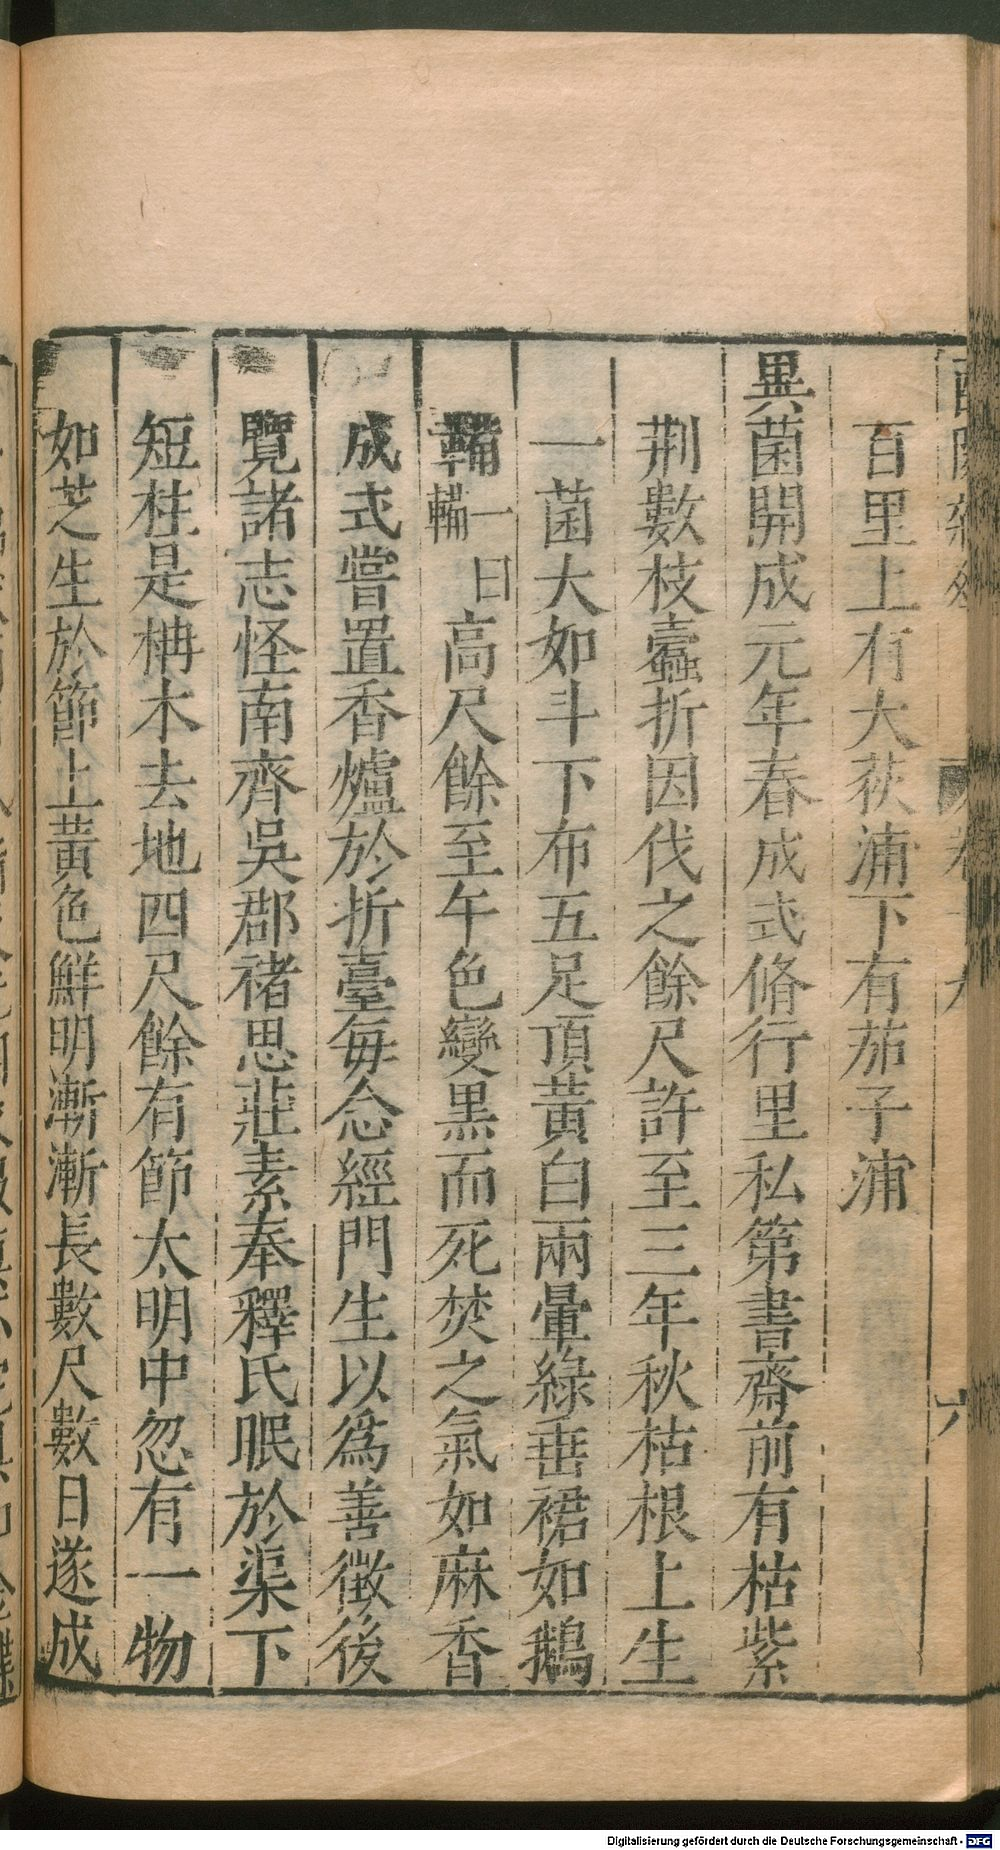 百里上有大荻浦下有茄子浦
異菌開成元年春成式脩行里私第書齋前有枯紫
荆數枝蠹折因伐之餘尺許至三年秋枯根上生
一菌大如斗下布五足頂黃白兩暈綠垂裙如鵝
鞴一曰䩻高尺餘至午色變黑而死焚之氣如麻香
成式嘗置香爐於折臺每念經門生以爲善徵後
覽諸志怪南齊吳郡褚思莊素奉釋氏眠於渠下
短柱是柟木去地四尺餘有節大明中忽有一物
如芝生於節上黃色鮮明漸漸長數尺數日遂成
六
Digitalisierung gefördert durch die Deutsche Forschungsgemeinschaft - DFG